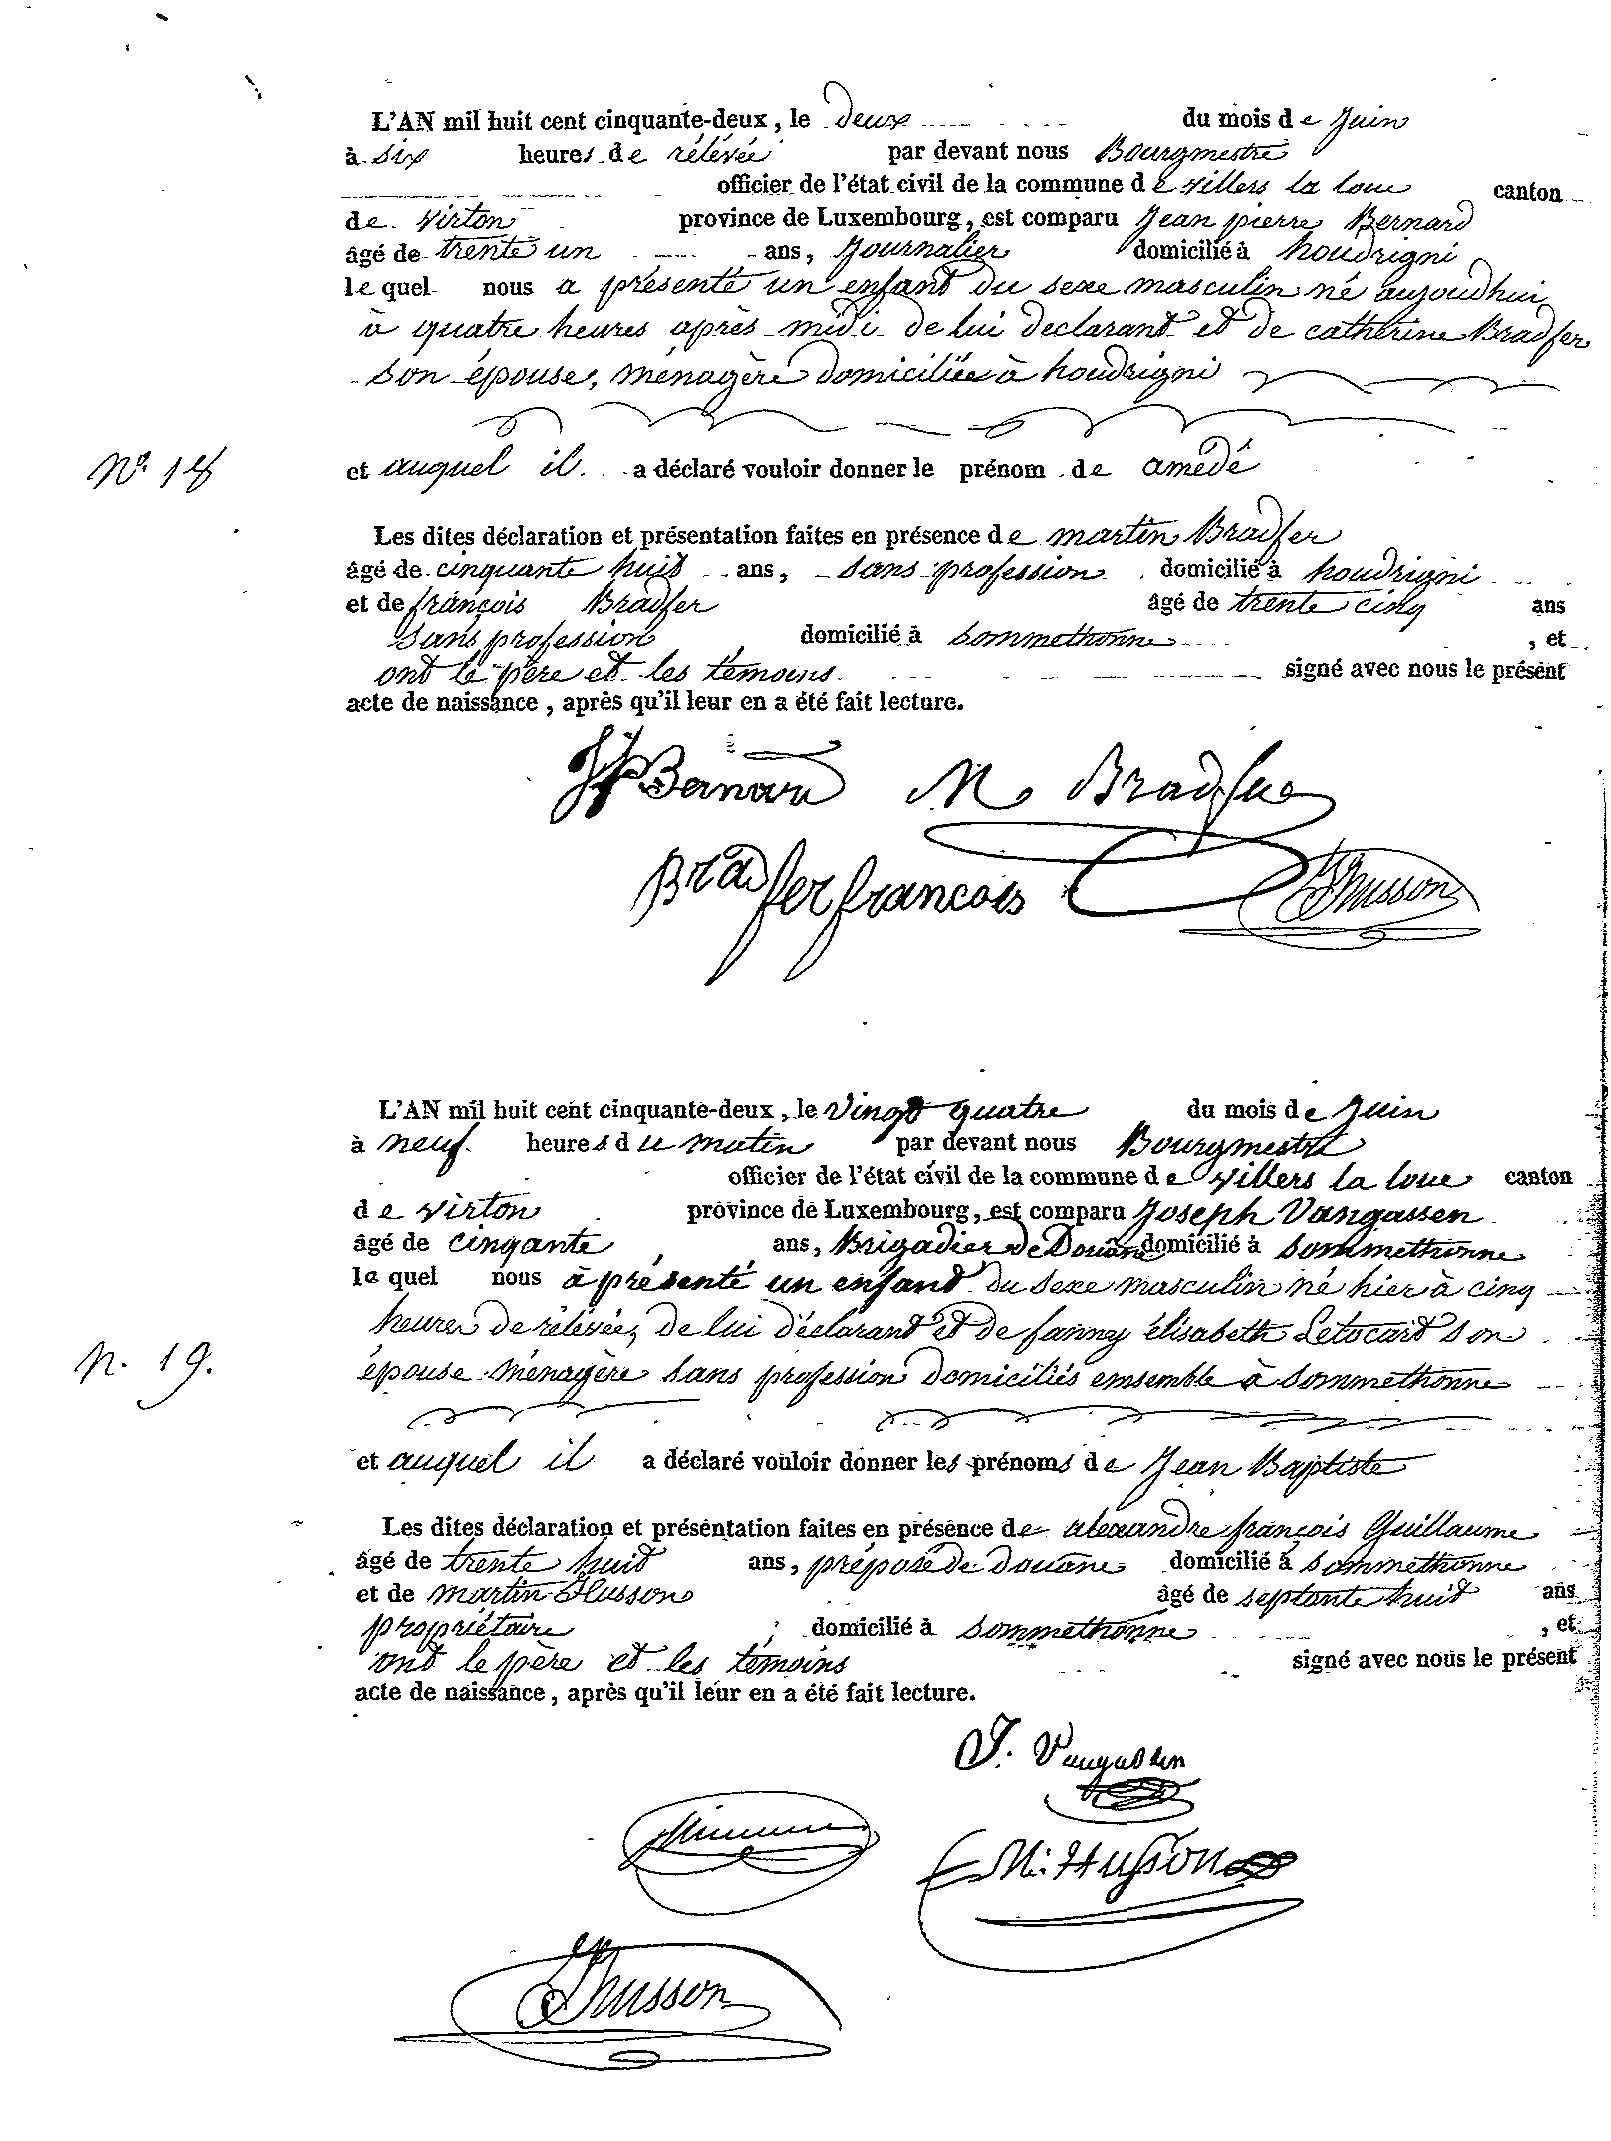 L'AN mil huit cent cinquante-deux, le deux du mois de Juin
à six heures de rélévée par devant nous Bourgmestre
officier de l'état civil de la commune de villers la loue canton
de virton province de Luxembourg, est comparu Jean pierre Bernard
âgé de trente un ans, Journalier domicilié à houdrigni
le quel nous a présenté un enfant du sexe masculin né aujourdhui
à quatre heures après midi de lui declarant et de catherine Bradfer
son épouse, ménagère domiciliée à houdrigni
N°. 18
et auquel il a déclaré vouloir donner le prénom de amédé
Les dites déclaration et présentation faites en présence de martin Bradfer
âgé de cinquante huit ans, sans profession domicilié à houdrigni
et de françois Bradfer âgé de trente cinq ans
sans profession domicilié à sommethonne, et
ont le père et les témoins signé avec nous le présent
acte de naissance, après qu'il leur en a été fait lecture.
JP Bernard M Bradfer
Bradfer francois Husson
L'AN mil huit cent cinquante-deux, le Vingt quatre du mois de Juin
à neuf heures du matin par devant nous Bourgmestre
officier de l'état civil de la commune de villers la loue canton
de virton province de Luxembourg, est comparu Joseph Vangassen
âgé de cinqante ans, Brigadier de Douane domicilié à sommethonne
le quel nous à présenté un enfant du sexe masculin né hier à cinq
heures de rélévée, de lui déclarant et de fanny élisabeth Letocart son
N. 19.
épouse ménagère sans profession domiciliés emsemble à sommethonne
et auquel il a déclaré vouloir donner les prénoms de Jean Baptiste
Les dites déclaration et présentation faites en présence de alexandre françois Guillaume
âgé de trente huit ans, préposé de douane domicilié à sommethonne
et de martin Husson âgé de septante huit ans
propriétaire domicilié à sommethonne, et
ont le père et les témoins signé avec nous le présent
acte de naissance, après qu'il leur en a été fait lecture.
J. Vangassen
M: Husson
Husson